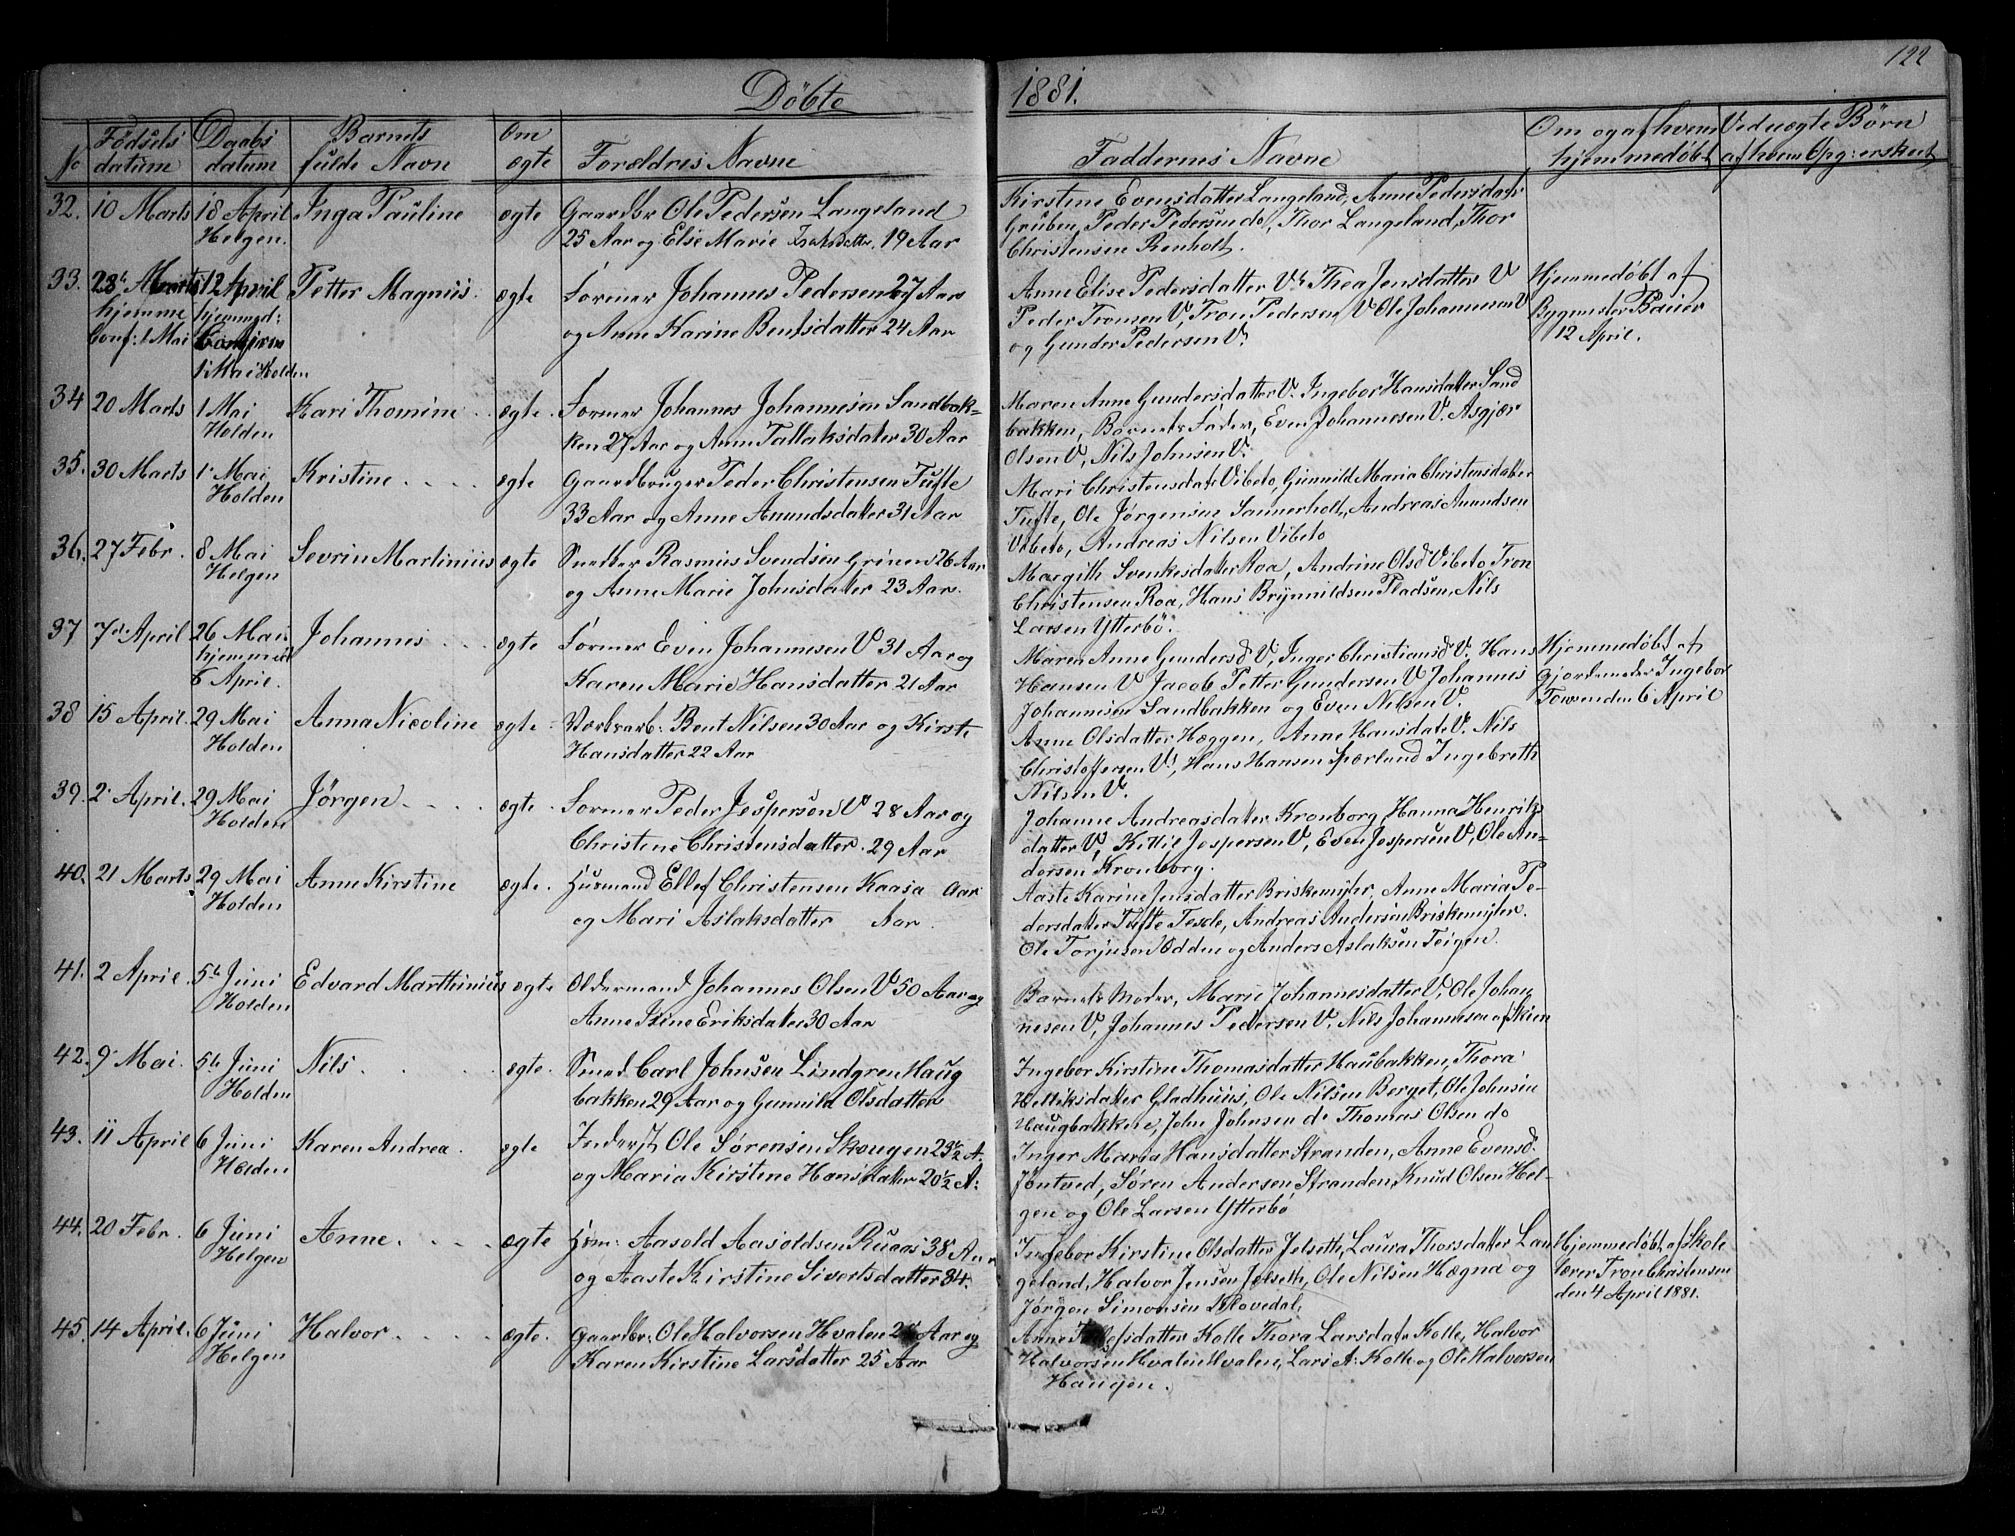 122
Döbte 1881.
No Fødsels datum Daabs datum Barnets fulde Navn Om ægte Forældres Navne Faddernes Navne Om og af hvem hjemmedöbt Ved uægte Börn af hvem Opg: erskent
32. 10 Marts 18 April Inga Pauline ægte Gaardbr Ole Pedersen Langeland Kirstine Evensdatter Langeland, Anne Pedersdatr
Helgen. 25 Aar og Else Marie Isaksdatter. 19 Aar Gruben, Peder Pedersen do, Thor Langeland, Thor
Christensen Renholt.
33. 28 Marts 12 April Petter Magnus. ægte Formar Johannes Pedersen 27 Aar Anne Elise Pedersdatter V. Thea Jensdatter V Hjemmedöbt af
hjemme hjemmed: og Anne Karine Bentsdatter 24 Aar Peder Tronsen V, Tron Pedersen V Ole Johannesen V Bygmester Baüer
Conf: 1 Mai Confirm og Gunder Pedersen V. 12 April.
1 Mai Holden
34 20 Marts 1 Mai Kari Thomine ægte. Formar Johannes Johannesen Sandbak- Maren Anne Gundersdatter V. Ingebor Hansdatter Sand
Holden ken 27 Aar og Anne Tallaksdater 30 Aar bakken, Barnets Fader, Even Johannesen V. Asgjær
Olsen V, Nils Johnsen V.
35. 30 Marts 1 Mai Kristine ægte Gaardbruger Peder Christensen Tufte Mari Christensdatr Vibeto, Gunnild Maria Christensdatter
Holden 33 Aar og Anne Amundsdater 31 Aar Tufte, Ole Jørgensen Sannerholt, Andreas Amundsen
Vibeto, Andreas Nilsen Vibeto
36. 27 Febr. 8 Mai Sevrin Martinius ægte Snedker Rasmus Svendsen Grinen 26 Aar Margith Svenkesdatter Roa, Andrine Olsd Vibeto Tron
Helgen og Anne Marie Johnsdatter 23 Aar. Christensen Roa, Hans Brynnildsen Pladsen, Nils
Larsen Ytterbö.
37 7de April 26 Mai Johannes ægte Formar Even Johannesen V 31 Aar og Maren Anne Gundersd V, Inger Christiansd V. Hans Hjemmedöbt af
6 April. Karen Marie Hansdatter 21 Aar Hansen V Jacob Petter Gundersen V Johannes Gjordemoder Ingebor
Johannesen Sandbakken og Even Nilsen V. den 6 April
38 15 April 29 Mai Anna Nicoline ægte Værksarb: Bent Nilsen 30 Aar og Kirste Anne Olsdatter Hæggen, Anne Hansdatr V. Nils
Holden Hansdatter 22 Aar Christoffersen V, Hans Hansen Spærland Ingebreth
Nilsen V.
39. 2 April. 29 Mai Jörgen ægte Formar Peder Jespersen V 28 Aar og Johanne Andreasdater Kronborg, Hanna Henriks
Holden Christine Christensdatter. 29 Aar datter V, Kittil Jespersen V, Even Jespersen V, Ole An-
dersen Kronborg.
40. 21 Marts 29 Mai Anne Kirstine ægte. Husmand Ellef Christensen Kaasa Aar Aaste Karine Jensdatter Briskemyler, Anne Maria Pe-
Holden og Mari Aslaksdatter Aar. dersdatter Tufte, Andreas Andersen Briskemyler.
Ole Torjusen Odden og Anders Aslaksen Teigen.
41. 2 April. 5te Juni Edvard Marthinius ægte Oldermand Johannes Olsen V 50 Aar og Barnets Moder, Marie Johannesdatter V, Ole Johan
Holden Anne Stine Eriksdater 30 Aar nesen V, Johannes Pedersen V. Nils Johannesen af Skien
42. 9 Mai. 5te Juni Nils ægte. Smed Carl Johnsen Lindgren Haug Ingebor Kirstine Thomasdatter Haubakken, Thora
Holden bakken 29 Aar og Gunnild Olsdatter Helliksdatter Gladhuus, Ole Nilsen Berget, Ole Johnsen
Haugbakken, John Johnsen do Thomas Olsen do
43. 11 April 6 Juni Karen Andrea. ægte Inderst Ole Sørensen Skougen 23½ A. Inger Maria Hansdatter Stranden, Anne Evensd.
Holden og Maria Kirstine Hansdatter 20½ A: Jöntved, Sören Andersen Stranden, Knud Olsen Hel-
gen og Ole Larsen Ytterbö
44. 20 Febr. 6 Juni Anne. ægte Hüm: Aasold Aasoldsen Ruaas 38 Aar Ingebor Kirstine Olsdatter Jelseth, Laura Thorsdatter Lan Hjemmedöbt af Skole
Helgen og Aaste Kirstine Sivertsdatter 34. geland, Halvor Jensen Jelseth, Ole Nilsen Hægna og lærer Tron Christensen
Jörgen Simonsen Klovedal, den 4 April 1881.
45. 14 April. 6 Juni Halvor ægte. Gaardbr: Ole Halvorsen Hvalen Aar og Anne datter Kolle Thora Larsdatr Kolle, Halvor
Helgen Karen Kirstine Larsdatter 25 Aar Halvorsen Hvalen Hvalen, Lars A: Kolle og Ole Halvorsen
Haugen.